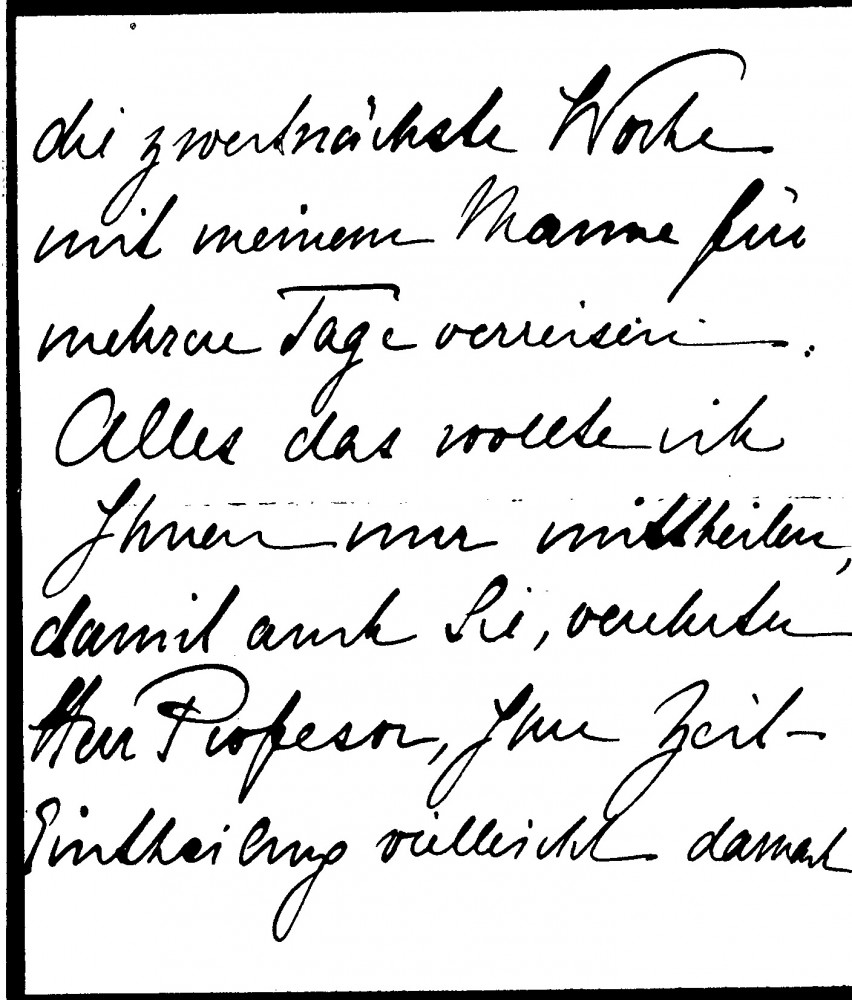 die zweitnächste Woche
mit meinem Manne für
mehrere Tage verreisen.
Alles das wollte ich
Ihnen nur mittheilen,
damit auch Sie, verehrter
Herr Profesor, Ihre Zeit-
Eintheilung vielleicht darnach